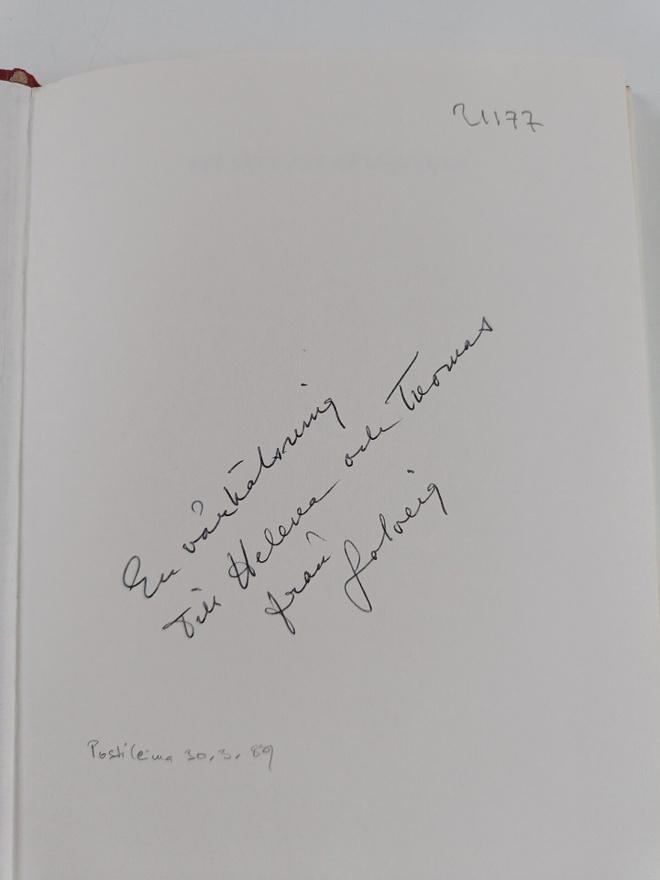 21177
En vårhälsning
till Helena och Thomas
från Solveig
Postileima 30.3.89